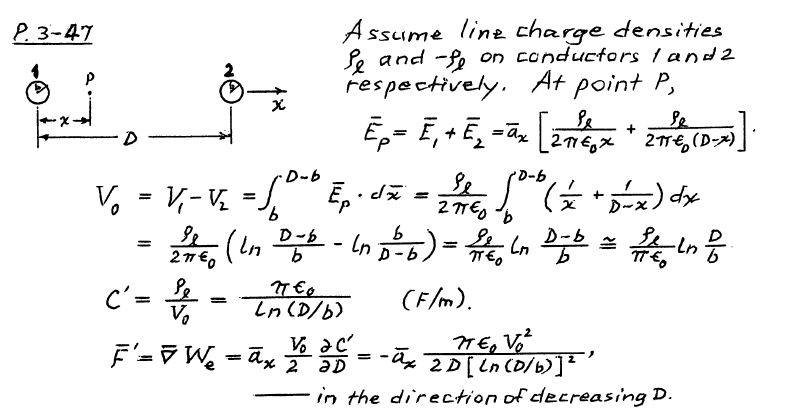 P. 3-47
Assume line charge densities
ρℓ and -ρℓ on conductors 1 and 2
respectively. At point P,
1 b P 2 b x
x
D
Ēp = Ē₁ + Ē₂ = āx [ ρℓ/(2πε₀x) + ρℓ/(2πε₀(D-x)) ].
V₀ = V₁ - V₂ = ∫_b^{D-b} Ēp · dx̄ = ρℓ/(2πε₀) ∫_b^{D-b} (1/x + 1/(D-x)) dx
= ρℓ/(2πε₀) (ln (D-b)/b - ln b/(D-b)) = ρℓ/(πε₀) ln (D-b)/b ≅ ρℓ/(πε₀) ln D/b
C' = ρℓ/V₀ = πε₀/ln(D/b) (F/m).
F̄' = ∇̄ We = āx V₀/2 ∂C'/∂D = -āx πε₀V₀²/(2D[ln(D/b)]²),
—— in the direction of decreasing D.